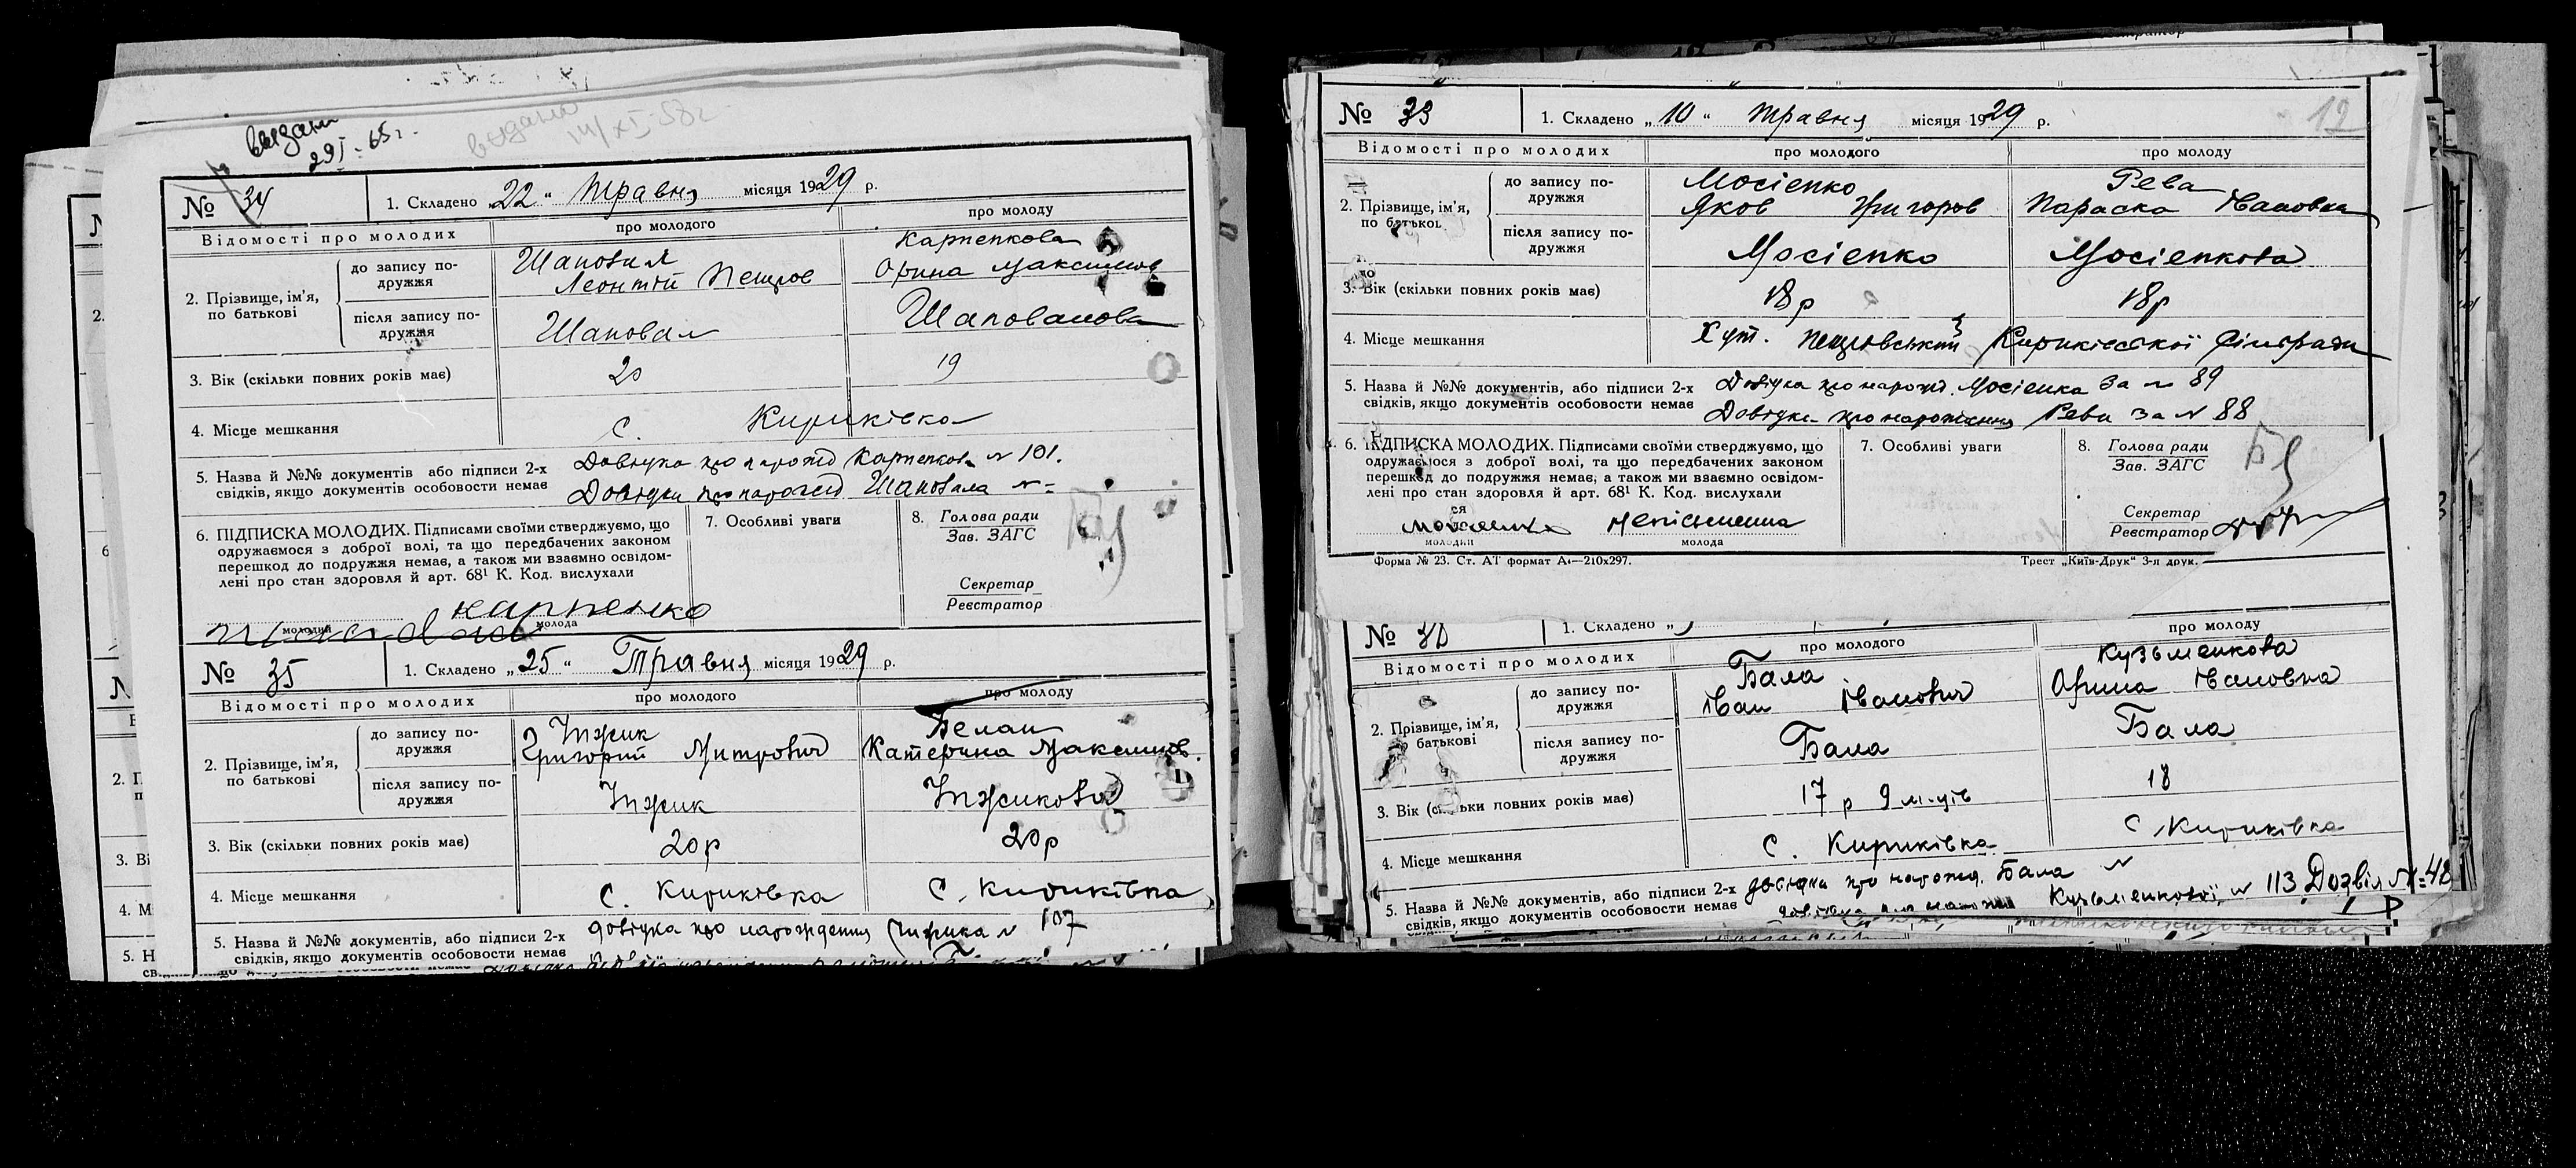 выдано
29 I-65 г.
выдано
14/XI-58 г
№ 34
1. Складено „22“ Травня місяця 1929 р.
Відомості про молодих
про молодого
про молоду
2. Прізвище, ім’я, по батькові
до запису подружжя
Шаповал
Леонтій Петров
Карпенкова
Орина Максимов
після запису подружжя
Шаповал
Шаповалова
3. Вік (скільки повних років має)
20
19
4. Місце мешкання
с. Кириківка
5. Назва й №№ документів або підписи 2-х
свідків, якщо документів особовости немає
Довідка про нарожд Карпенкова № 101.
Довідка про нарожд Шаповала №=
6. ПІДПИСКА МОЛОДИХ. Підписами своїми стверджуємо, що
одружаємося з доброї волі, та що передбачених законом
перешкод до подружжя немає, а також ми взаємно освідом-
лені про стан здоровля й арт. 68¹ К. Код. вислухали
карпенко
молодий
молода
7. Особливі уваги
8. Голова ради
Зав. ЗАГС
Секретар
Реєстратор
№ 35
1. Складено „25“ Травня місяця 1929 р.
Відомості про молодих
про молодого
про молоду
2. Прізвище, ім’я,
по батькові
до запису по-
дружжя
Чижик
Григорий Митрович
Белан
Катерина Максимов.
після запису по-
дружжя
Чижик
Чижикова
3. Вік (скільки повних років має)
20р
20р
4. Місце мешкання
с. Кириківка
с. Кириківка
5. Назва й №№ документів, або підписи 2-х
свідків, якщо документів особовости немає
довідка про нарождения Чижика № 107
№ 33
1. Складено „10“ Травня місяця 1929 р.
12
Відомості про молодих
про молодого
про молоду
2. Прізвище, ім’я,
по батькові
до запису по-
дружжя
Мосіенко
Яков Григоров
Рева
Параска Івановна
після запису по-
дружжя
Мосіенко
Мосіенкова
3. Вік (скільки повних років має)
18р
18р
4. Місце мешкання
Хут. Петровський Кириківської Сільради
5. Назва й №№ документів, або підписи 2-х
свідків, якщо документів особовости немає
Довідка про нарожд. Мосіенка За № 89
Довідка про нарождения Рева За № 88
6. ПІДПИСКА МОЛОДИХ. Підписами своїми стверджуємо, що
одружаємося з доброї волі, та що передбачених законом
перешкод до подружжя немає, а також ми взаємно освідом-
лені про стан здоровля й арт. 68¹ К. Код. вислухали
неписьменна
молодий
молода
7. Особливі уваги
8. Голова ради
Зав. ЗАГС
Секретар
Реєстратор
Форма № 23. Ст. АТ формат А₄—210х297.
Трест „Київ-Друк“ 3-я друк.
№
1. Складено „
Відомості про молодих
про молодого
про молоду
2. Прізвище, ім’я,
батькові
до запису по-
дружжя
Бала
Іван Іванович
Кузьменкова
Орина Івановна
після запису по-
дружжя
Бала
Бала
3. Вік (скільки повних років має)
17 р 9 м-ців
18
4. Місце мешкання
с. Кириківка
с. Кириківка
5. Назва й №№ документів, або підписи 2-х
свідків, якщо документів особовости немає
довідки про нарожд. Бала №
Кузьменкової, № 113 Дозвіл №=42